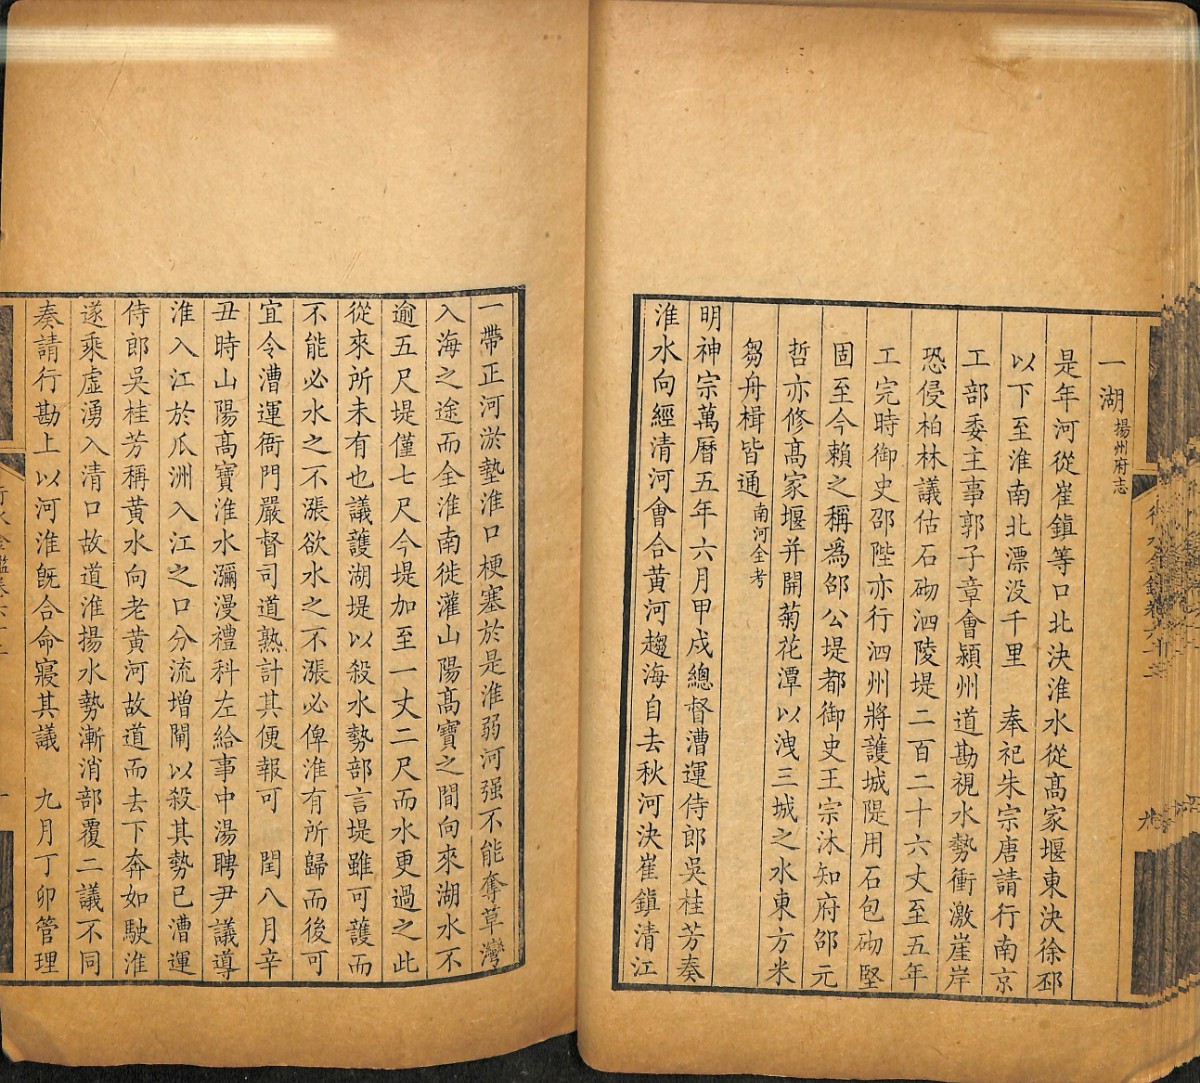 一湖揚州府志
是年河從崔鎮等口北決淮水從髙家堰東決徐邳
以下至淮南北漂没千里　奉祀朱宗唐請行南京
工部委主事郭子章會潁州道勘視水勢衝激崖岸
恐侵柏林議估石砌泗陵堤二百二十六丈至五年
工完時御史邵陛亦行泗州將護城隄用石包砌堅
固至今賴之稱為邵公堤都御史王宗沐知府邵元
哲亦修髙家堰并開菊花潭以洩三城之水東方米
芻舟楫皆通南河全考
明神宗萬曆五年六月甲戌總督漕運侍郎吳桂芳奏
淮水向經清河會合黄河趨海自去秋河決崔鎮清江
一帶正河淤墊淮口梗塞於是淮弱河强不能奪草灣
入海之途而全淮南徙灌山陽髙寶之間向來湖水不
逾五尺堤僅七尺今堤加至一丈二尺而水更過之此
從來所未有也議護湖堤以殺水勢部言堤雖可護而
不能必水之不漲欲水之不漲必俾淮有所歸而後可
宜令漕運衙門嚴督司道熟計其便報可　閏八月辛
丑時山陽髙寶淮水瀰漫禮科左給事中湯聘尹議導
淮入江於瓜洲入江之口分流增閘以殺其勢已漕運
侍郎吳桂芳稱黄水向老黄河故道而去下奔如駛淮
遂乘虛湧入清口故道淮揚水勢漸消部覆二議不同
奏請行勘上以河淮旣合命寢其議　九月丁卯管理